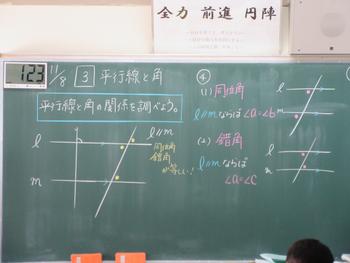 全力 前進 円陣
123
11/8 3 平行線と角
平行線と角の関係を調べよう。
l
m
l//m
同位角
錯角
が等しい!
④
(1) 同位角
l//mならば∠a=∠b
(2) 錯角
l//mならば
∠a=∠c
l
m
l
m